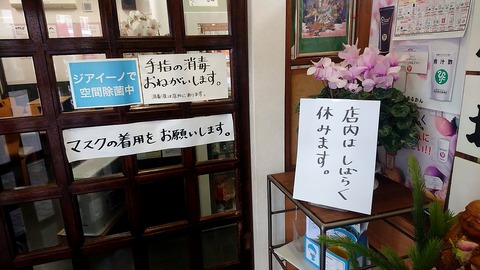 ジアイーノで
空間除菌中
手指の消毒
おねがいします。
マスクの着用をお願いします。
店内はしばらく
休みます。
青汁酢